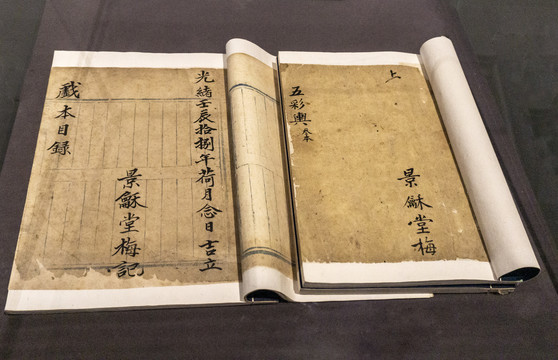 光緒壬辰拾捌年荷月念日吉立
戲本目錄
景龢堂梅記
上
五彩輿
景龢堂梅